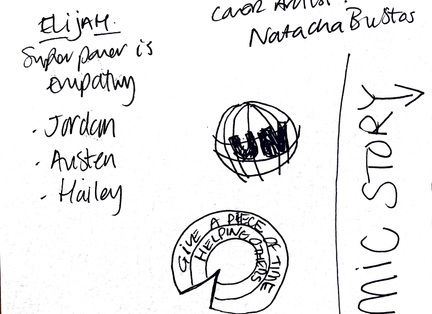 ELIJAH.
Super power is
empathy
· Jordan
· Austen
· Hailey
Cover Artist:
Natacha Bustos
UN
GIVE A PIECE OF TIME
HELPING OTHERS
MIC STORY